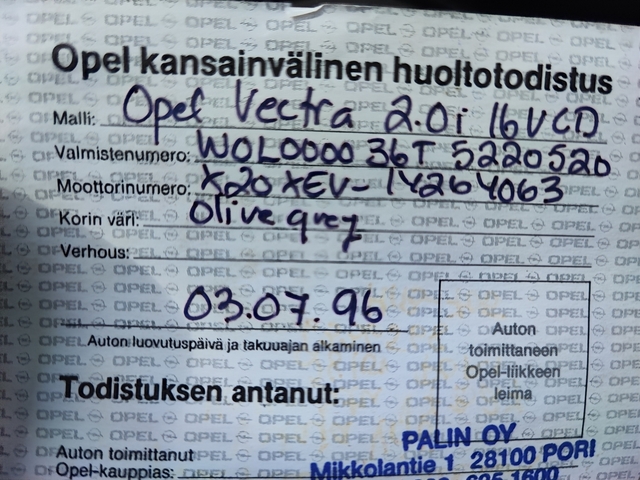 Opel kansainvälinen huoltotodistus
Malli: Opel Vectra 2.0i 16V CD
Valmistenumero: W0L000036T5220520
Moottorinumero: X20XEV-14264063
Korin väri: Olive grey
Verhous:
03.07.96
Auton luovutuspäivä ja takuuajan alkaminen
Auton
toimittaneen
Opel-liikkeen
leima
Todistuksen antanut:
PALIN OY
Auton toimittanut
Mikkolantie 1 28100 PORI
Opel-kauppias: